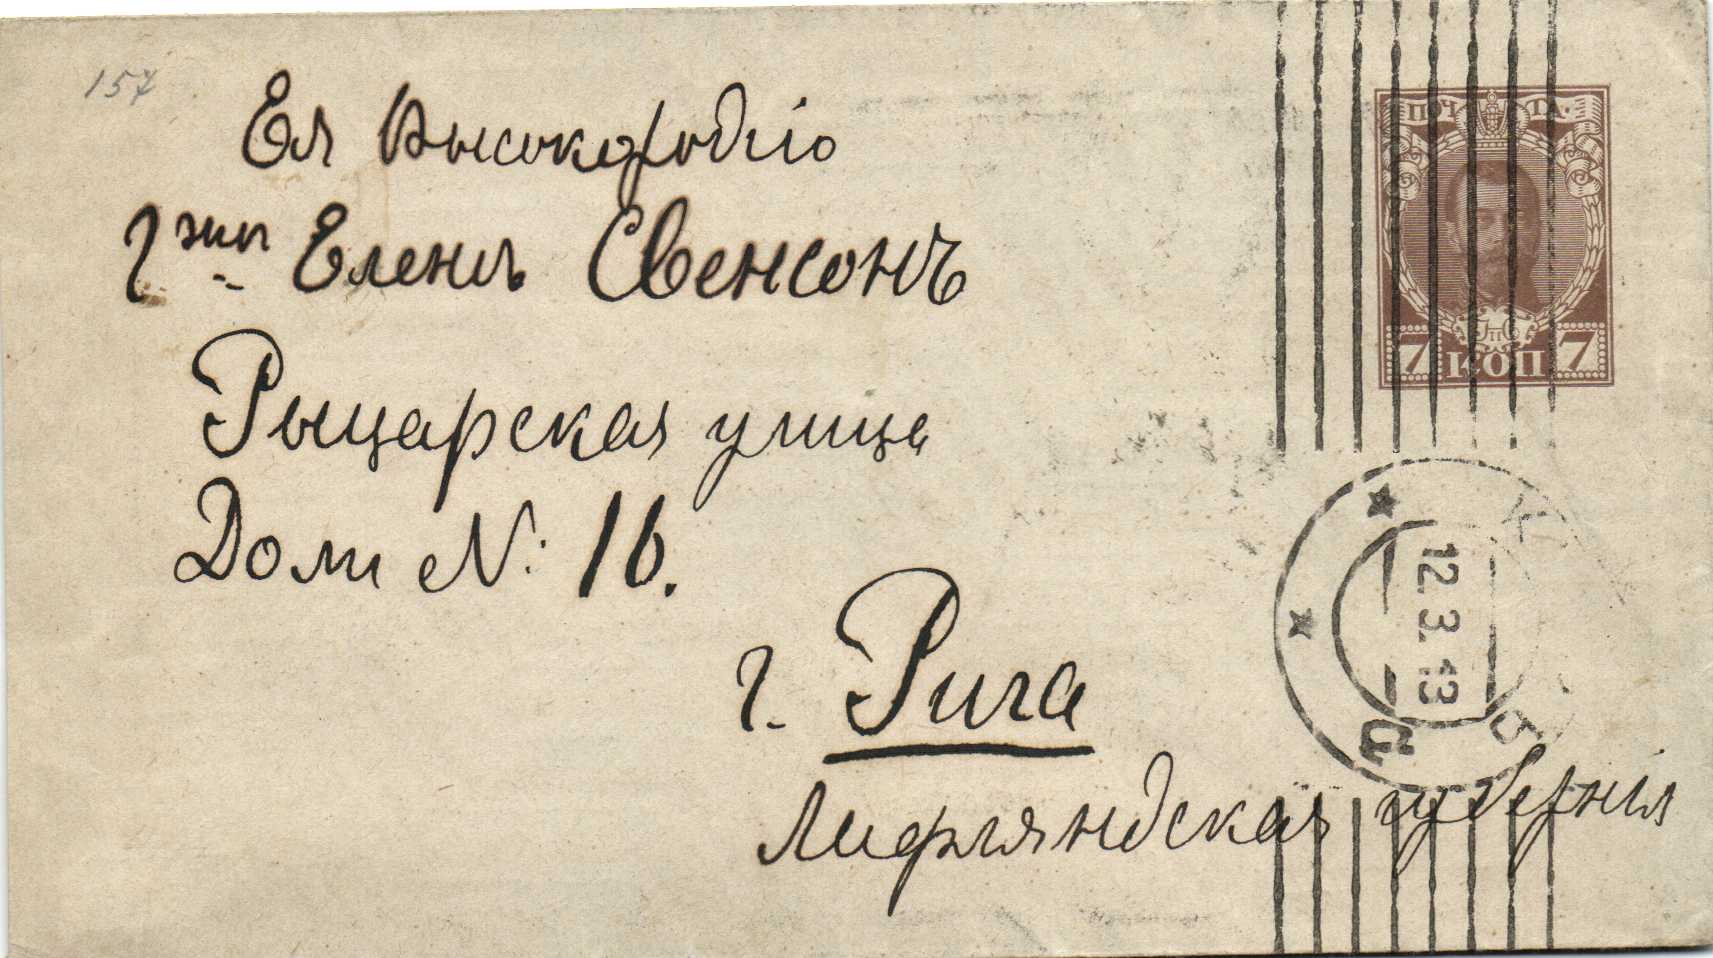 157
Ея Высокородію
Гжѣ Еленѣ Свенсонъ
Рыцарская улица
Домъ №: 16.
г. Рига
Лифляндская губернія
ПОЧТА.
7 КОП 7
12.3.13